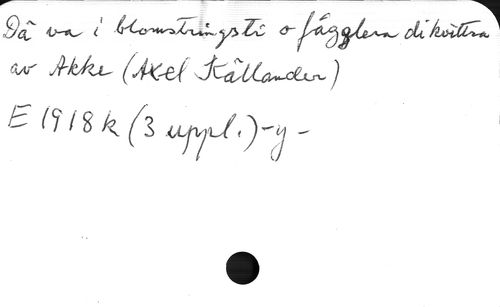 Dä va i blomstringsti o fägglera dikvittra
av Akke (Axel Källander)
E 1918 k (3 uppl.) -y-